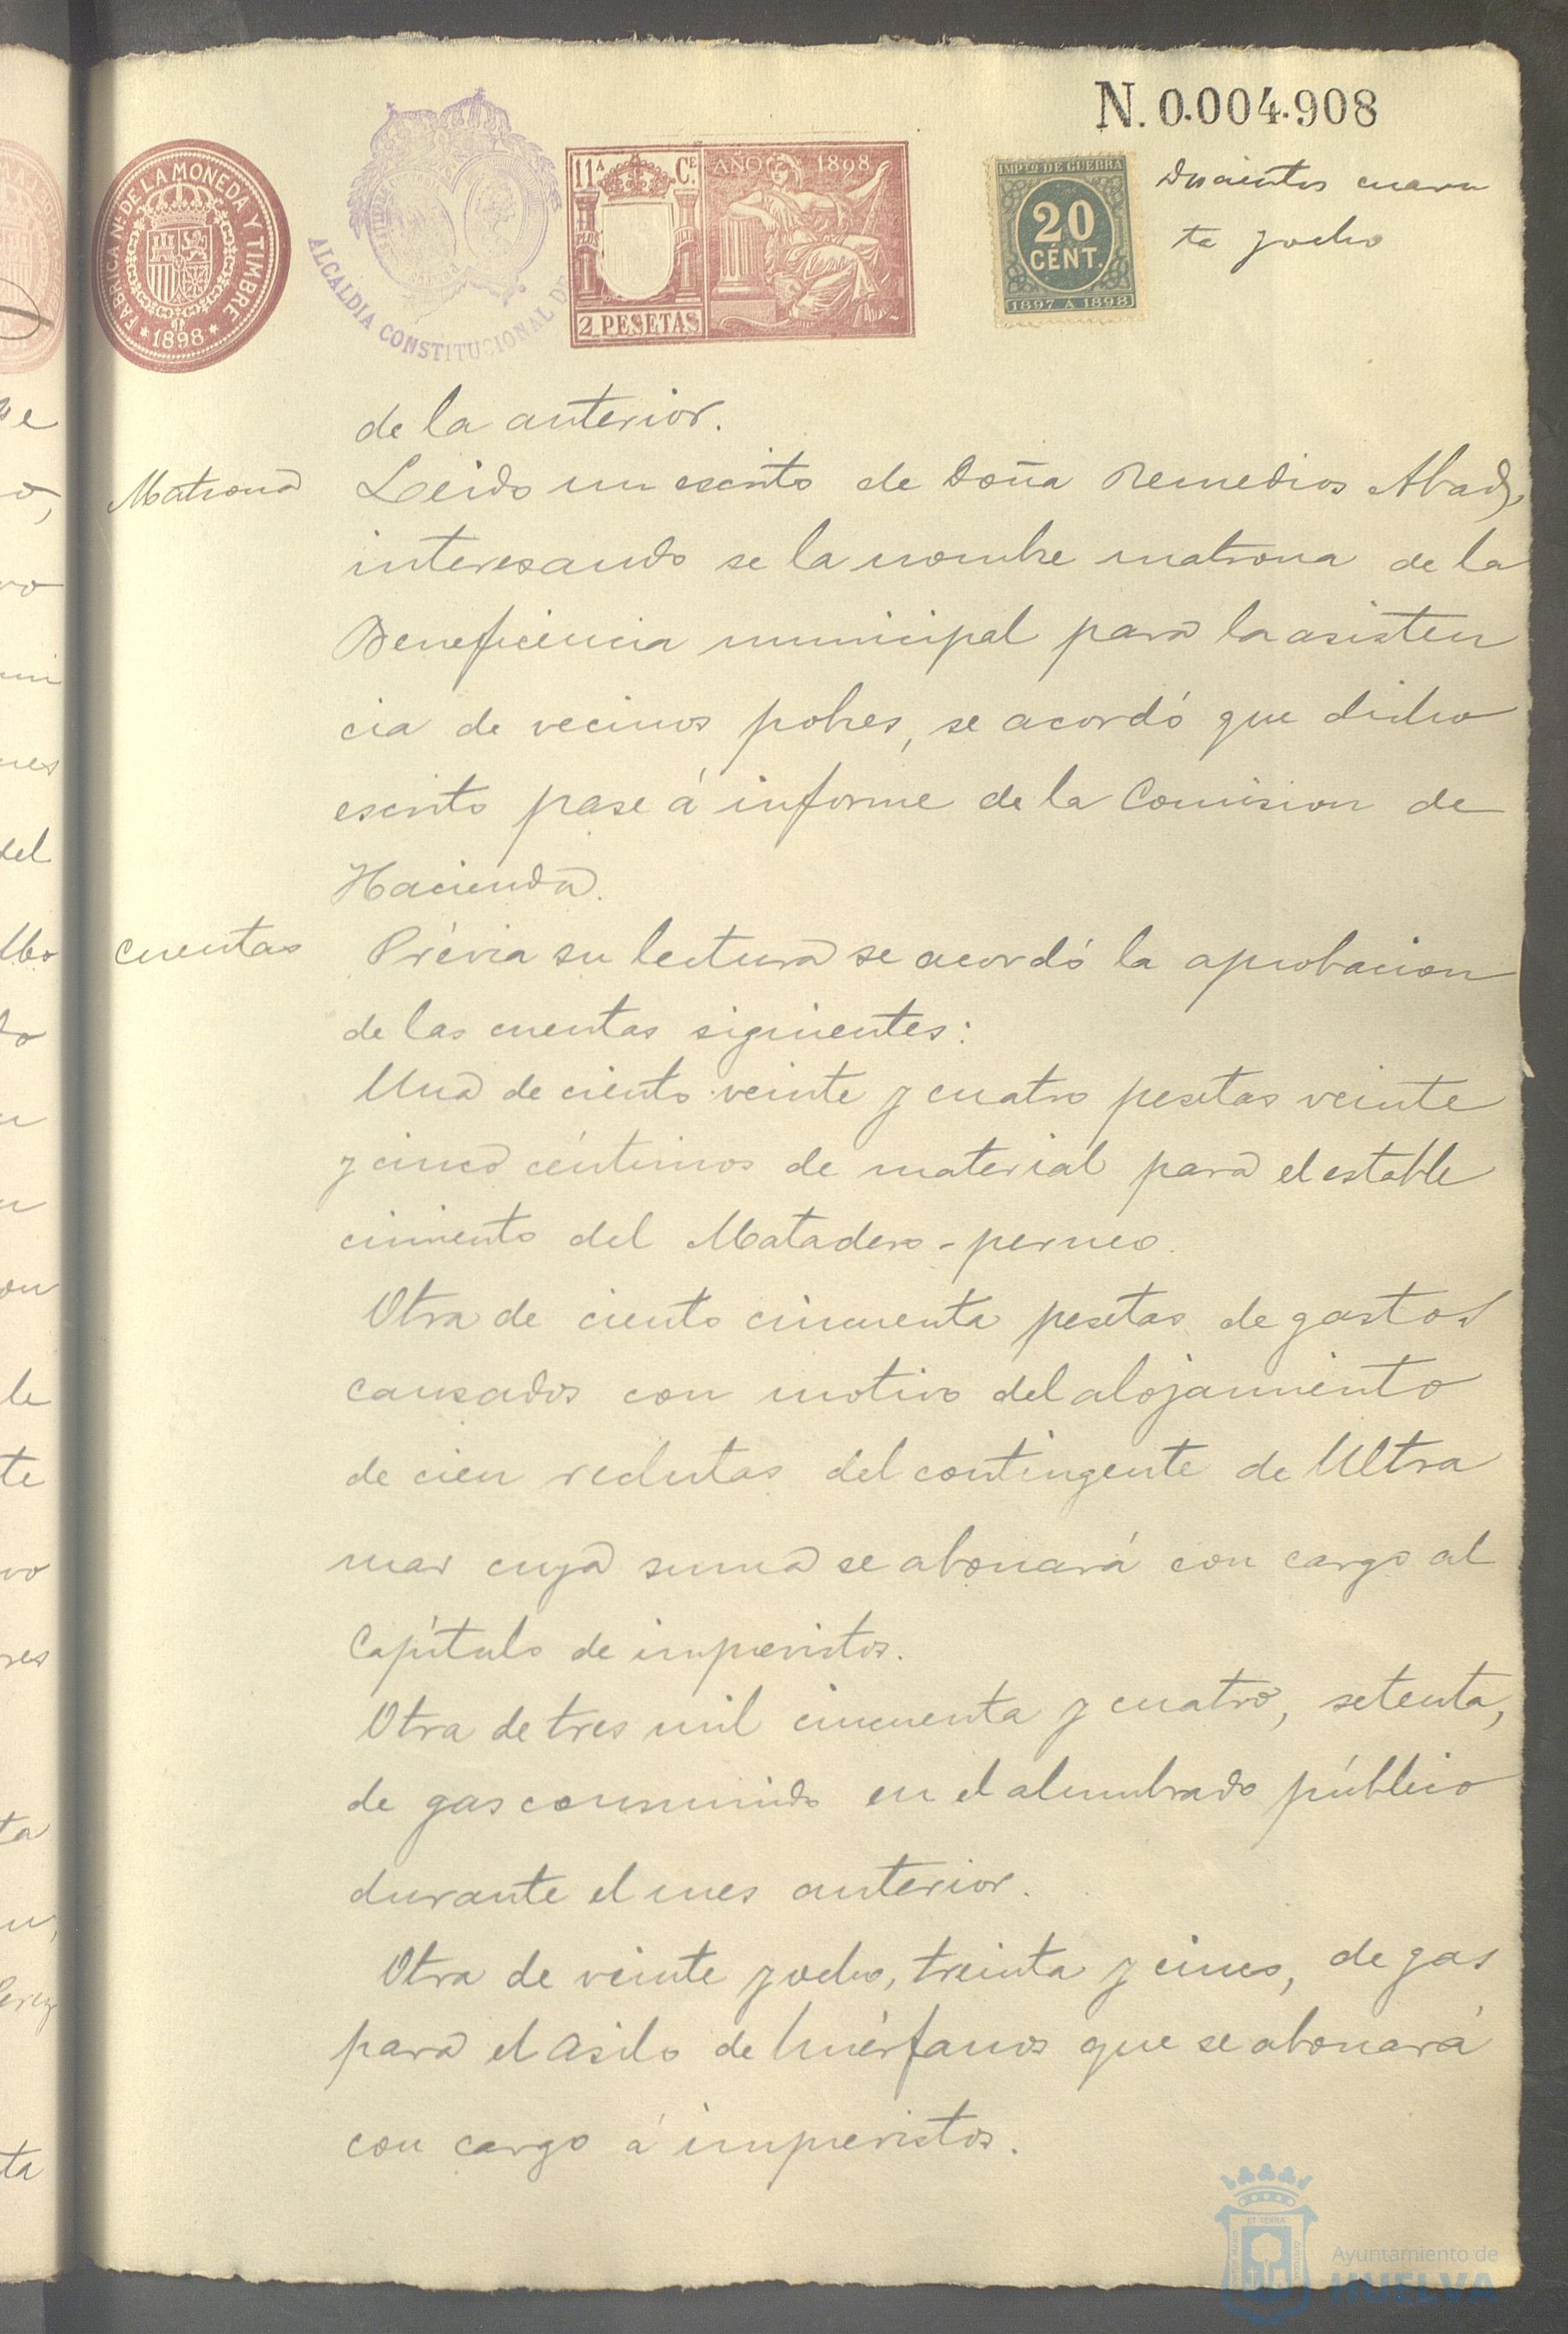 N. 0.004.908
FABRICA Nl. DE LA MONEDA Y TIMBRE
* 1898 *
ALCALDIA CONSTITUCIONAL DE
11ª Cᴱ. AÑO 1898
2 PESETAS
IMPTO. DE GUERRA
20
CÉNT.
1897 A 1898
Doscientos cuaren
ta y ocho
de la anterior.
Matrona
Leido un escrito de Doña Remedios Abad,
interesando se la nombre matrona de la
Beneficencia municipal para la asisten
cia de vecinos pobres, se acordó que dicho
escrito pase á informe de la Comision de
Hacienda.
Cuentas
Prévia su lectura se acordó la aprobacion
de las cuentas siguientes:
Una de ciento veinte y cuatro pesetas veinte
y cinco céntimos de material para el estable
cimiento del Matadero-perneo.
Otra de ciento cincuenta pesetas de gastos
causados con motivo del alojamiento
de cien reclutas del contingente de Ultra
mar cuya suma se abonará con cargo al
Capítulo de imprevistos.
Otra de tres mil cincuenta y cuatro, setenta,
de gas consumido en el alumbrado público
durante el mes anterior.
Otra de veinte y ocho, treinta y cinco, de gas
para el asilo de huérfanos que se abonará
con cargo á imprevistos.
Ayuntamiento de
HUELVA